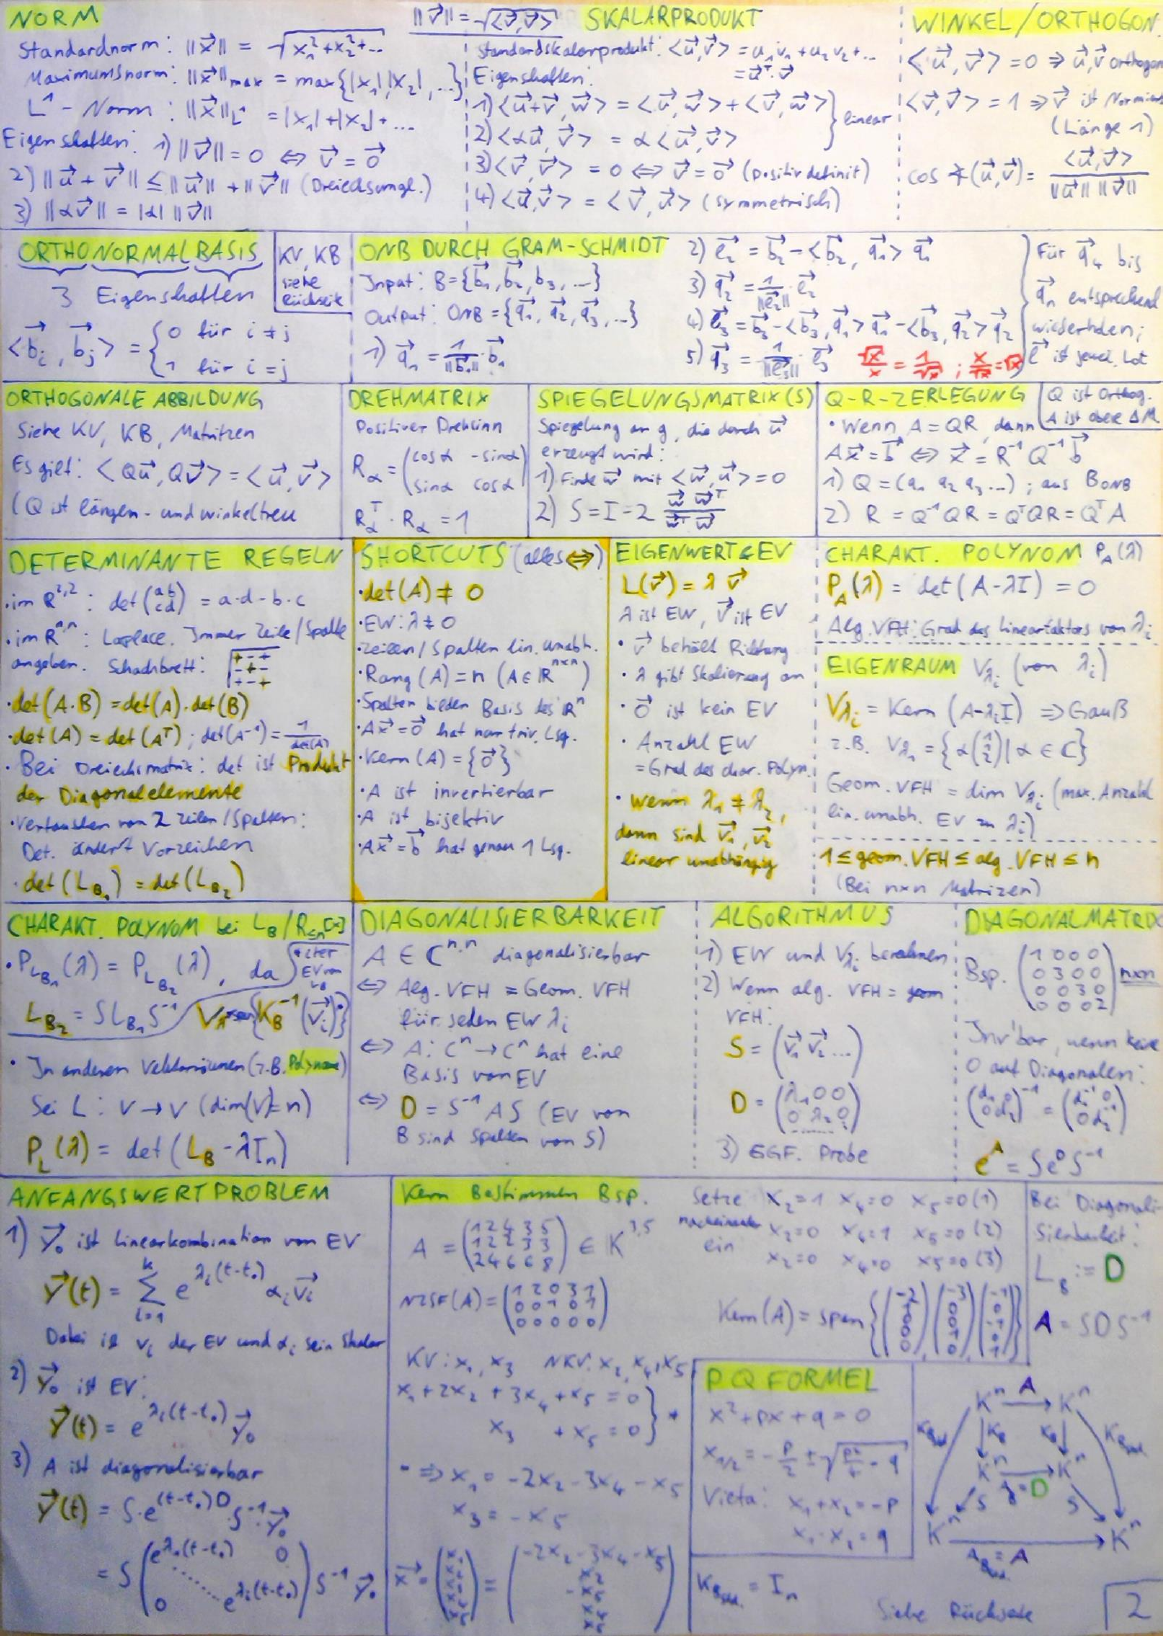 NORM
Standardnorm: ||x⃗|| = √(x₁²+x₂²+...)
Maximumsnorm: ||x⃗||max = max{|x₁|,|x₂|, ...}
L¹ - Norm : ||x⃗||L¹ = |x₁|+|x₂|+...
Eigenschaften: 1) ||v⃗|| = 0 ⇔ v⃗ = 0⃗
2) ||u⃗ + v⃗|| ≤ ||u⃗|| + ||v⃗|| (Dreiecksungl.)
3) ||αv⃗|| = |α| ||v⃗||
||v⃗|| = √<v⃗,v⃗>
SKALARPRODUKT
Standardskalarprodukt: <u⃗,v⃗> = u₁v₁ + u₂v₂ + ...
= u⃗ᵀ·v⃗
Eigenschaften:
1) <u⃗+v⃗, w⃗> = <u⃗, w⃗> + <v⃗, w⃗>
2) <αu⃗, v⃗> = α<u⃗, v⃗>
} linear
3) <v⃗, v⃗> = 0 ⇔ v⃗ = 0⃗ (positiv definit)
4) <u⃗,v⃗> = <v⃗,u⃗> (symmetrisch)
WINKEL/ORTHOGON.
<u⃗, v⃗> = 0 ⇒ u⃗,v⃗ orthogon
<v⃗, v⃗> = 1 ⇒ v⃗ ist Normiert
(Länge 1)
cos ∢(u⃗,v⃗) = <u⃗,v⃗> / ||u⃗|| ||v⃗||
ORTHONORMALBASIS
3 Eigenschaften
<b⃗i, b⃗j> = {0 für i ≠ j
1 für i = j
KV, KB
siehe
Rückseite
ONB DURCH GRAM-SCHMIDT
Input: B = {b⃗₁, b⃗₂, b⃗₃, ...}
Output: ONB = {q⃗₁, q⃗₂, q⃗₃, ...}
1) q⃗₁ = 1/||b⃗₁|| · b⃗₁
2) l⃗₂ = b⃗₂ - <b⃗₂, q⃗₁> q⃗₁
3) q⃗₂ = 1/||l⃗₂|| · l⃗₂
4) l⃗₃ = b⃗₃ - <b⃗₃, q⃗₁> q⃗₁ - <b⃗₃, q⃗₂> q⃗₂
5) q⃗₃ = 1/||l⃗₃|| · l⃗₃
√x/x = 1/√x ; x/√x = √x
Für q⃗₄ bis
q⃗n entsprechend
wiederholen;
l⃗ ist jeweil. Lot
ORTHOGONALE ABBILDUNG
Siehe KV, KB, Matrizen
Es gilt: <Qu⃗, Qv⃗> = <u⃗, v⃗>
(Q ist längen- und winkeltreu
DREHMATRIX
Positiver Drehsinn
Rα = (cosα -sinα
sinα cosα)
Rαᵀ · Rα = 1
SPIEGELUNGSMATRIX (S)
Spiegelung an g, die durch u⃗
erzeugt wird:
1) Finde w⃗ mit <w⃗, u⃗> = 0
2) S = I - 2 w⃗ w⃗ᵀ / w⃗ᵀ w⃗
Q-R-ZERLEGUNG
Q ist Orthog.
A ist obere ΔM
• Wenn A = QR, dann
Ax⃗ = b⃗ ⇔ x⃗ = R⁻¹ Q⁻¹ b⃗
1) Q = (q₁ q₂ q₃ ...) ; aus BONB
2) R = Q⁻¹QR = QᵀQR = QᵀA
DETERMINANTE REGELN
• im R²,² : det(a b
c d) = a·d - b·c
• im Rⁿ,ⁿ : Laplace. Immer Zeile/Spalte
angeben. Schachbrett: + - +
- + -
+ - +
• det(A·B) = det(A)·det(B)
• det(A) = det(Aᵀ) ; det(A⁻¹) = 1/det(A)
• Bei Dreiecksmatrix: det ist Produkt
der Diagonalelemente
• Vertauschen von 2 Zeilen/Spalten:
Det. ändert Vorzeichen
• det(LB₁) = det(LB₂)
SHORTCUTS (alles ⇔)
• det(A) ≠ 0
• EW: λ ≠ 0
• Zeilen/Spalten lin. unabh.
• Rang(A) = n (A ∈ ℝⁿˣⁿ)
• Spalten bilden Basis des ℝⁿ
• Ax⃗ = 0⃗ hat nur triv. Lsg.
• Kern(A) = {0⃗}
• A ist invertierbar
• A ist bijektiv
• Ax⃗ = b⃗ hat genau 1 Lsg.
EIGENWERT & EV
L(v⃗) = λ v⃗
λ ist EW, v⃗ ist EV
• v⃗ behält Richtung
• λ gibt Skalierung an
• 0⃗ ist kein EV
• Anzahl EW
= Grad des char. Polyn.
• Wenn λ₁ ≠ λ₂,
dann sind v⃗₁, v⃗₂
linear unabhängig
CHARAKT. POLYNOM PA(λ)
PA(λ) = det(A-λI) = 0
Alg. VFH: Grad des Linearfaktors von λi
EIGENRAUM Vλi (von λi)
Vλi = Kern (A-λiI) ⇒ Gauß
z.B. Vλ₁ = {α(1
2) | α ∈ ℂ}
Geom. VFH = dim Vλi (max. Anzahl
lin. unabh. EV zu λi)
1 ≤ geom. VFH ≤ alg. VFH ≤ n
(Bei n×n Matrizen)
CHARAKT. POLYNOM bei LB/R≤n[x]
• PLB₁(λ) = PLB₂(λ), da
LB₂ = S LB₁ S⁻¹
KB⁻¹(v⃗i)
• In anderen Vektorräumen (z.B. Polynome)
Sei L : V → V (dim(V) = n)
PL(λ) = det(LB - λIn)
DIAGONALISIERBARKEIT
A ∈ ℂⁿ,ⁿ diagonalisierbar
⇔ Alg. VFH = Geom. VFH
für jeden EW λi
⇔ A: ℂⁿ → ℂⁿ hat eine
Basis von EV
⇔ D = S⁻¹ A S (EV von
B sind Spalten von S)
ALGORITHMUS
1) EW und Vλi berechnen
2) Wenn alg. VFH = geom
VFH:
S = (v⃗₁ v⃗₂ ...)
D = (λ₁ 0 0
0 λ₂ 0
......)
3) GGF. Probe
DIAGONALMATRIX
Bsp. (1 0 0 0
0 3 0 0
0 0 3 0
0 0 0 2) n×n
Inv'bar, wenn keine
0 auf Diagonalen:
(d₁ 0
0 d₂)⁻¹ = (d₁⁻¹ 0
0 d₂⁻¹)
eᴬ = S eᴰ S⁻¹
ANFANGSWERTPROBLEM
1) y⃗₀ ist Linearkombination von EV
y⃗(t) = Σ(i=1 bis k) e^(λi(t-t₀)) αi v⃗i
Dabei ist vi der EV und αi sein Skalar
2) y⃗₀ ist EV:
y⃗(t) = e^(λi(t-t₀)) y⃗₀
3) A ist diagonalisierbar
y⃗(t) = S·e^((t-t₀)D)·S⁻¹·y⃗₀
= S (e^(λ₁(t-t₀)) 0
.......
0 e^(λi(t-t₀))) S⁻¹ y⃗₀
Kern Bestimmen Bsp.
A = (1 2 4 3 5
1 2 2 3 3
2 4 6 6 8) ∈ K³,⁵
NZSF(A) = (1 2 0 3 1
0 0 1 0 1
0 0 0 0 0)
KV: x₁, x₃ NKV: x₂, x₄, x₅
x₁ + 2x₂ + 3x₄ + x₅ = 0
x₃ + x₅ = 0 } *
* ⇒ x₁ = -2x₂ - 3x₄ - x₅
x₃ = -x₅
x⃗ = (x₁ x₂ x₃ x₄ x₅) = (-2x₂ - 3x₄ - x₅
x₂
-x₅
x₄
x₅)
Setze x₂=1 x₄=0 x₅=0 (1)
nacheinander x₂=0 x₄=1 x₅=0 (2)
ein x₂=0 x₄=0 x₅=0 (3)
Kern(A) = span {(-2 1 0 0 0), (-3 0 0 1 0), (-1 0 -1 0 1)}
Bei Diagonali-
sierbarkeit:
LB := D
A = SDS⁻¹
PQ FORMEL
x² + px + q = 0
x₁/₂ = -p/2 ± √(p²/4 - q)
Vieta: x₁ + x₂ = -p
x₁ · x₂ = q
Kⁿ A Kⁿ
KBst. KB KB KBst.
Kⁿ D Kⁿ
S S
Kⁿ Kⁿ
ABst. = A
KBst. = In
Siehe Rückseite
2